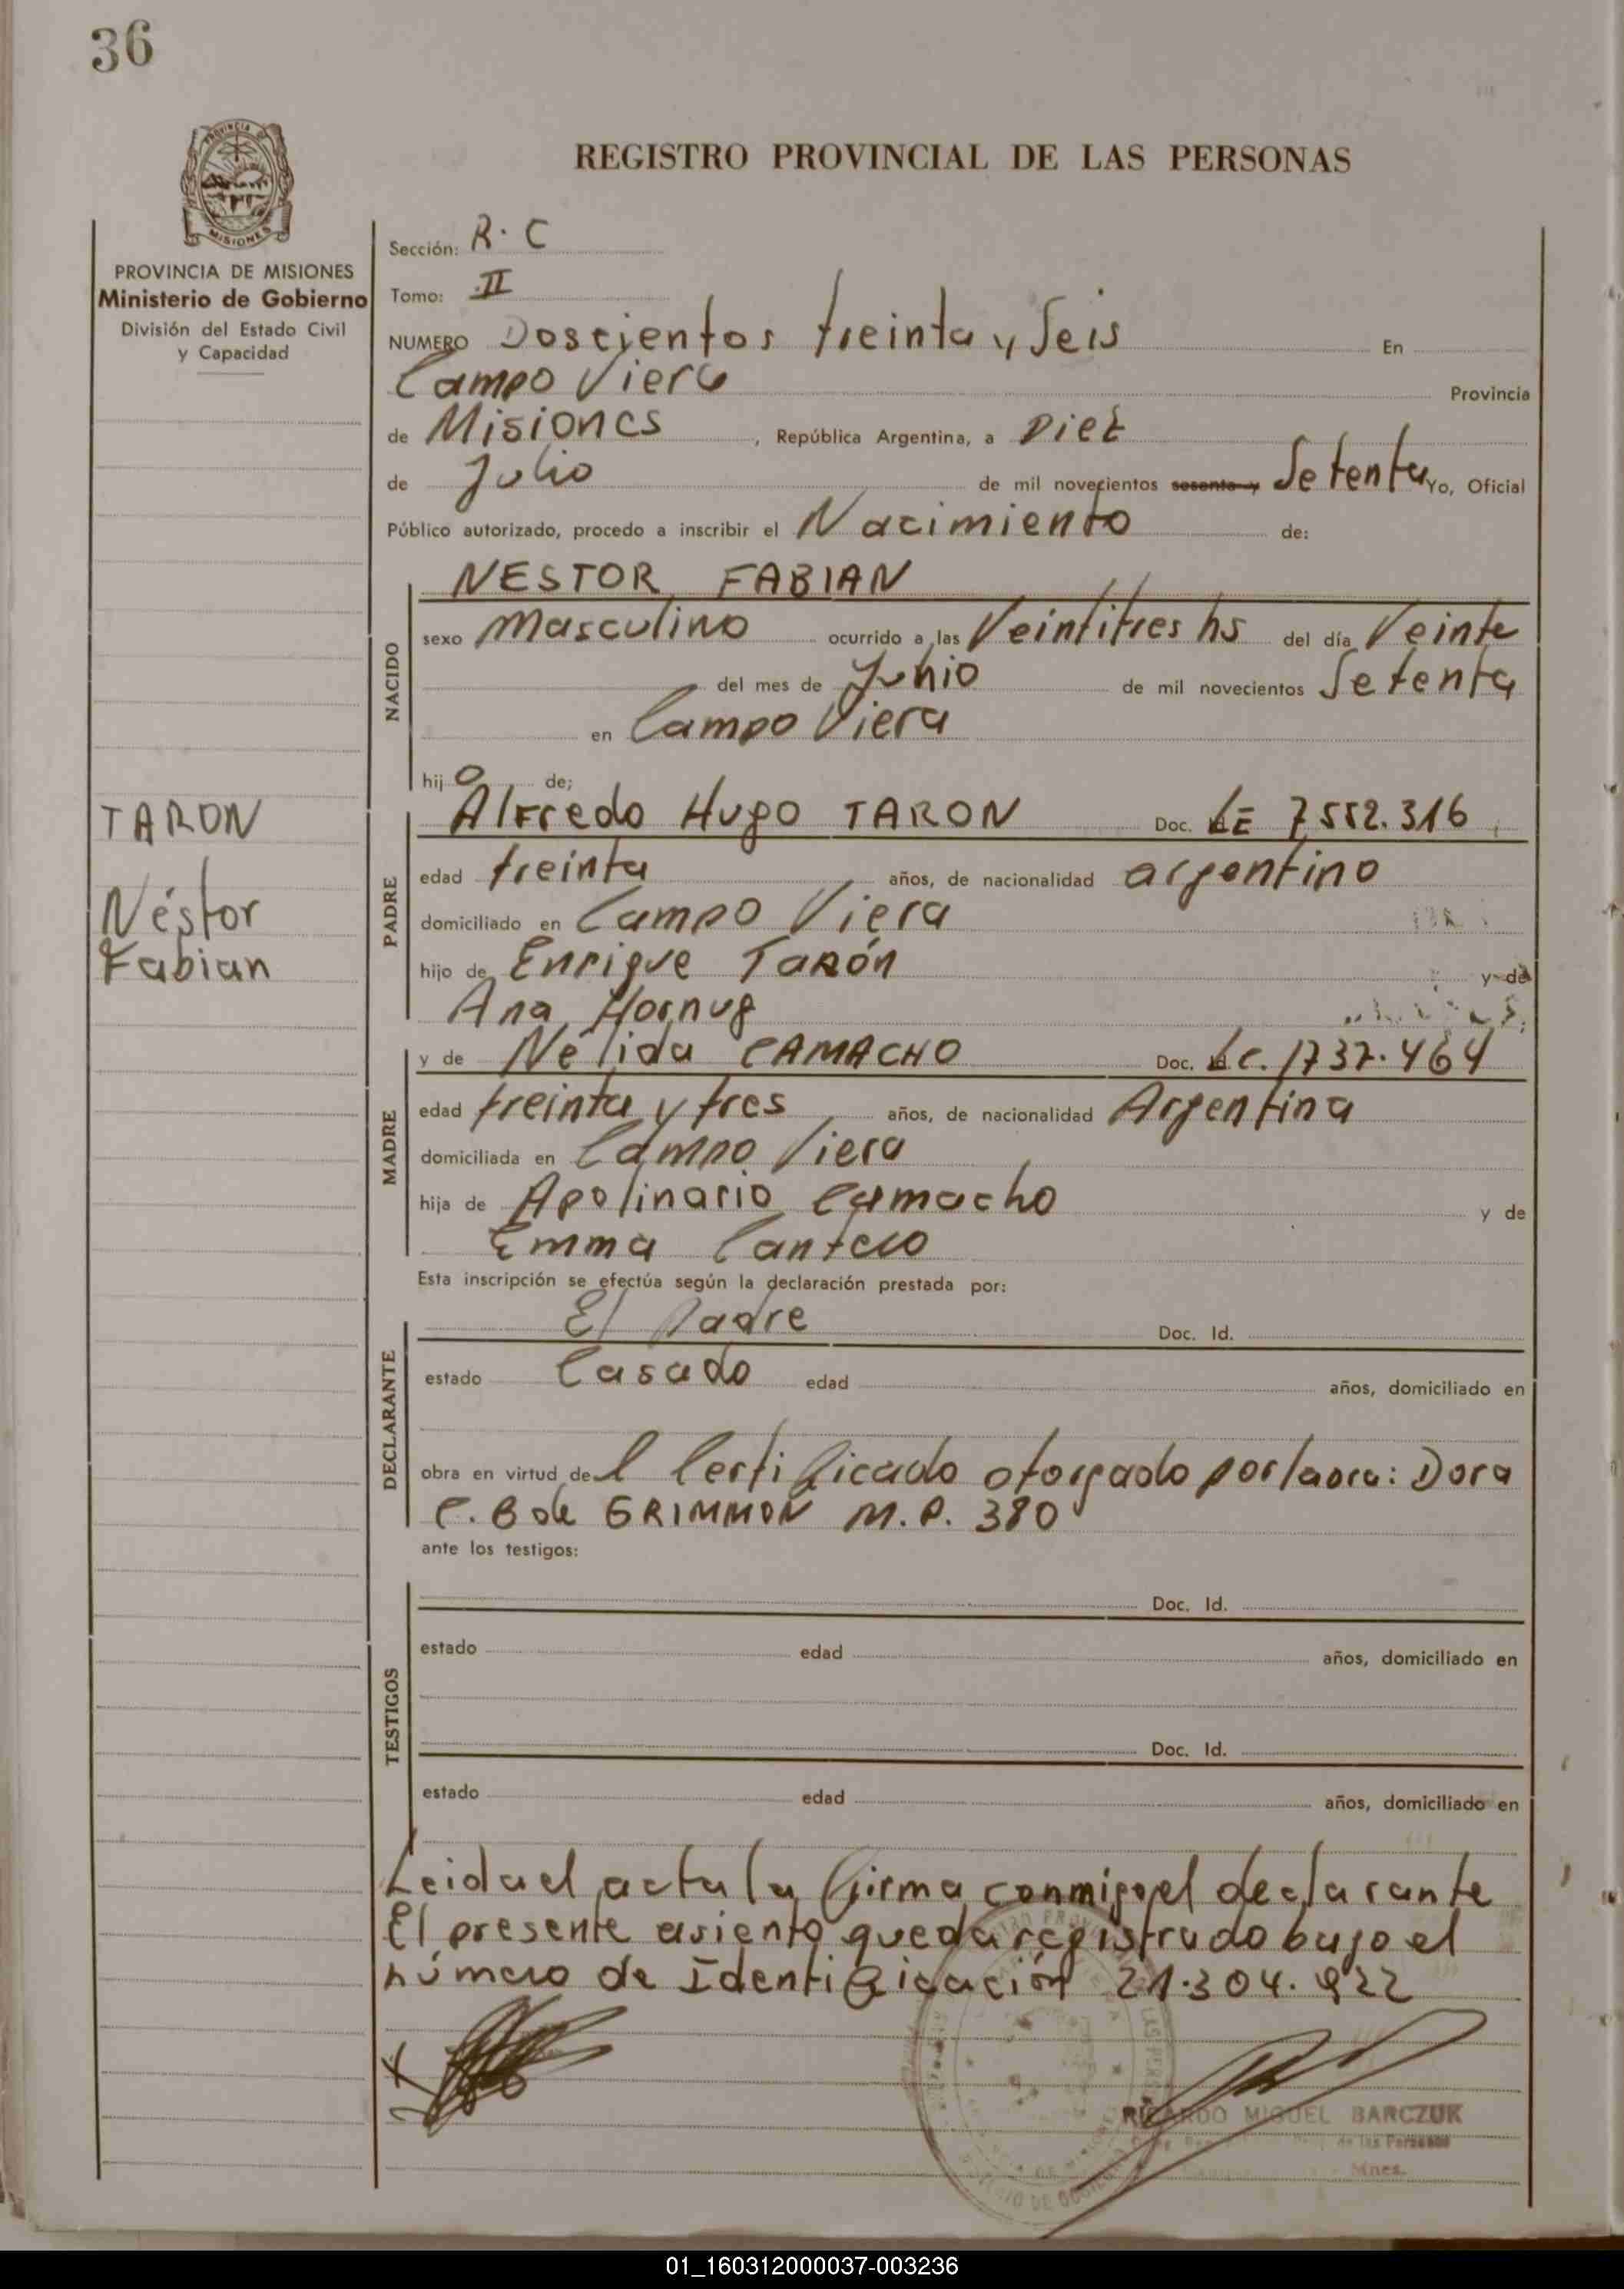 36
REGISTRO PROVINCIAL DE LAS PERSONAS
PROVINCIA DE MISIONES
Ministerio de Gobierno
División del Estado Civil
y Capacidad
Sección: R. C
Tomo: II
NUMERO Doscientos treinta y Seis En
Campo Viera Provincia
de Misiones, República Argentina, a Diez
de Julio de mil novecientos sesenta y Setenta Yo, Oficial
Público autorizado, procedo a inscribir el Nacimiento de:
NESTOR FABIAN
NACIDO
sexo Masculino ocurrido a las Veintitres hs del día Veinte
del mes de Junio de mil novecientos Setenta
en Campo Viera
hijo de;
TARON
Néstor
Fabian
PADRE
Alfredo Hugo TARON Doc. LE 7552.316
edad treinta años, de nacionalidad argentino
domiciliado en Campo Viera
hijo de Enrique Tarón y de
Ana Hornug
MADRE
y de Nélida CAMACHO Doc. LC. 1737.464
edad treinta y tres años, de nacionalidad Argentina
domiciliada en Campo Viera
hija de Apolinario Camacho y de
Emma Cantero
Esta inscripción se efectúa según la declaración prestada por:
DECLARANTE
El Padre Doc. Id.
estado Casado edad años, domiciliado en
obra en virtud del Certificado otorgado por la Dra: Dora
C. B de GRIMMON M.P. 380
ante los testigos:
TESTIGOS
Doc. Id.
estado edad años, domiciliado en
Doc. Id.
estado edad años, domiciliado en
Leida el acta la firma conmigo el declarante
El presente asiento queda registrado bajo el
número de Identificación 21.304.922
RICARDO MIGUEL BARCZUK
de las Personas
Mnes.
01_160312000037-003236